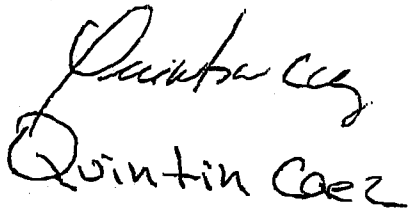 Quintin Caez
Quintin Caez